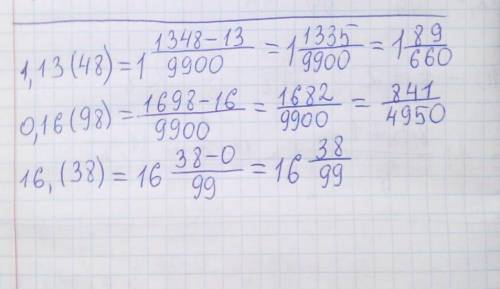 1,13(48) = 1 1348-13/9900 = 1 1335/9900 = 1 89/660
0,16(98) = 1698-16/9900 = 1682/9900 = 841/4950
16,(38) = 16 38-0/99 = 16 38/99